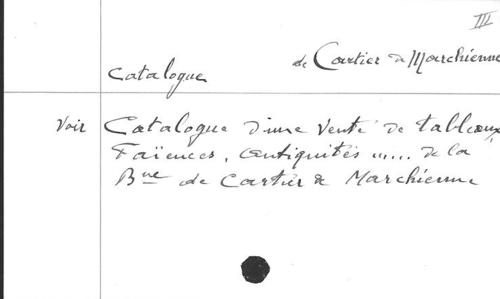 III
de Cartier de Marchienne
Catalogue
Voir Catalogue d'une Vente de tableaux,
Faïences, antiquités ...... de la
Bne de Cartier de Marchienne